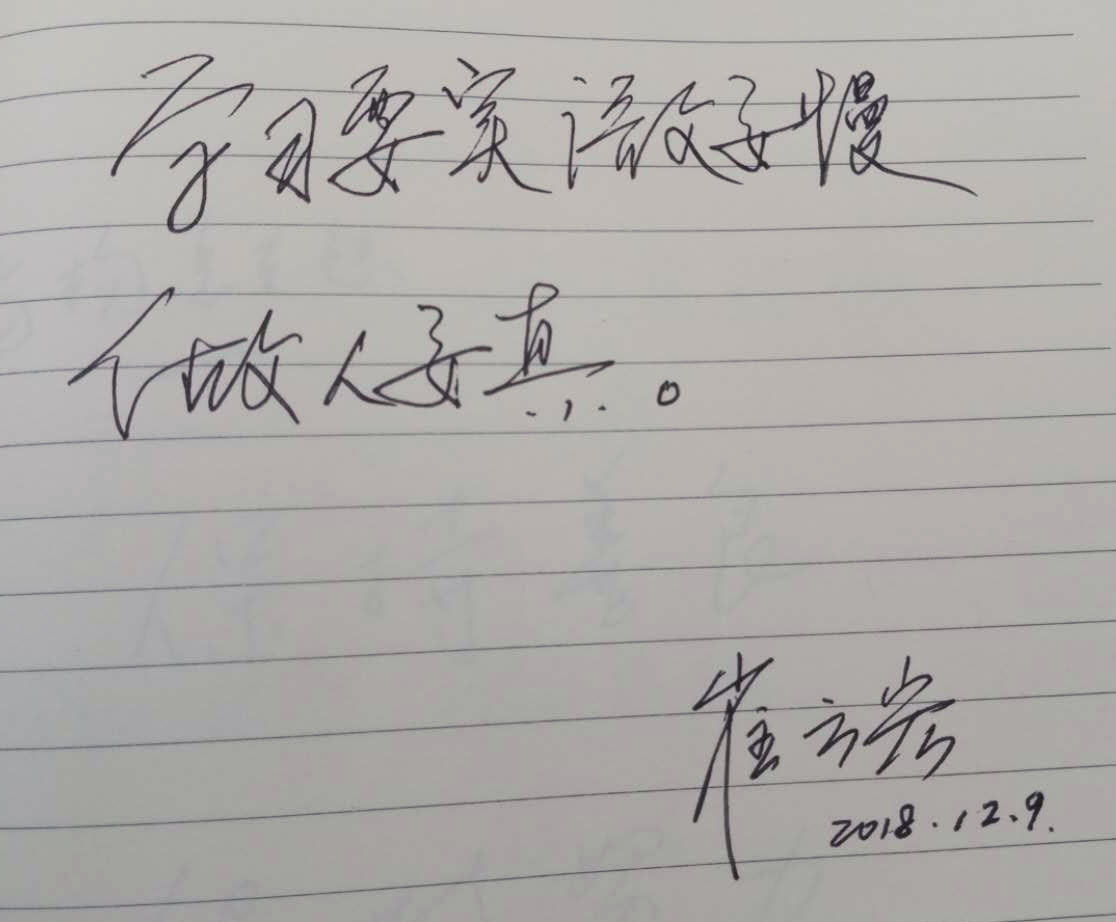 学习要实 语做要慢
做人要真。
崔
2018.12.9.